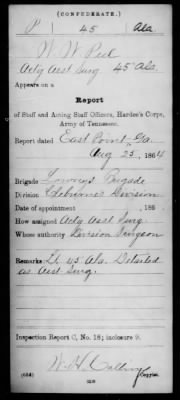 (CONFEDERATE.)
P 45 Ala.
W. W. Peel
Actg Asst Surg 45" Ala.
Appears on a
Report
of Staff and Acting Staff Officers, Hardee's Corps,
Army of Tennessee.
Report dated East Point Ga
Aug 25, 1864
Brigade Lowreys Brigade
Division Cleburnes Division
Date of appointment , 186 .
How assigned Actg Asst Surg.
Whose authority Division Surgeon
Remarks Lt 45 Ala. Detailed
as Asst Surg.
Inspection Report C, No. 18; inclosure 9.
W. H.
(654) Copyist.